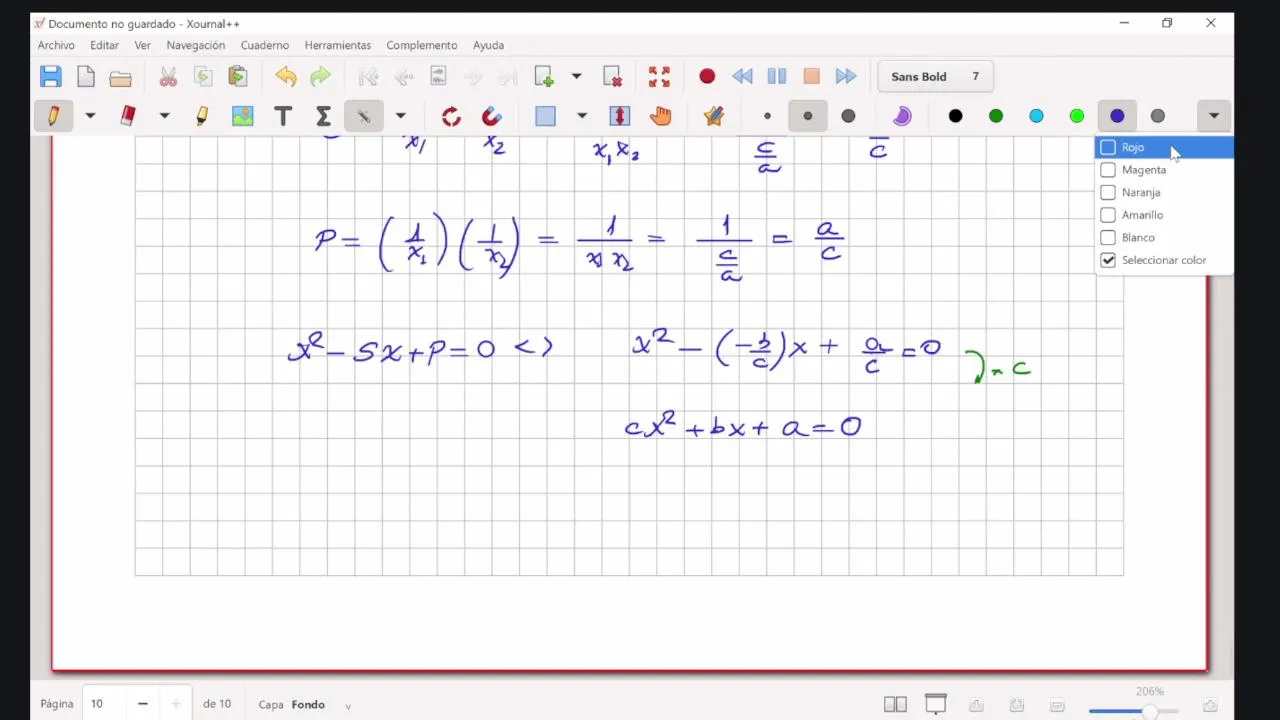 Documento no guardado - Xournal++
Archivo Editar Ver Navegación Cuaderno Herramientas Complemento Ayuda
Sans Bold 7
Rojo
Magenta
Naranja
Amarillo
Blanco
Seleccionar color
x₁ x₂ x₁x₂ c/a c
P = (1/x₁)(1/x₂) = 1/(x₁ x₂) = 1/(c/a) = a/c
x² - Sx + P = 0 <> x² - (-b/c)x + a/c = 0 × c
cx² + bx + a = 0
Página 10 de 10 Capa Fondo 206%